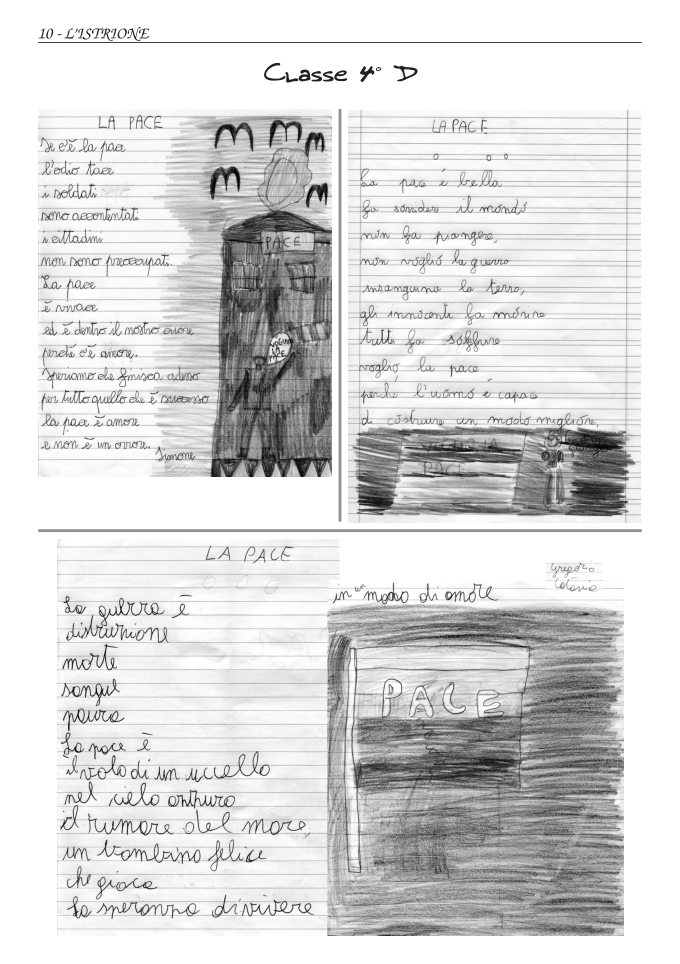 10 - L'ISTRIONE
Classe 4° D
LA PACE
Se c'è la pace
l'odio tace
i soldati
sono accontentati
i cittadini
non sono preoccupati.
La pace
è vivace
ed è dentro il nostro cuore
perchè c'è amore.
Speriamo che finisca adesso
per tutto quello che è successo
la pace è amore
e non è un orrore.
Simone
PACE
VOGLIAMO
LA
PACE
LA PACE
La pac è bella
fa sorrider il mondo
non fa piangere,
non voglio la guerra
insanguina la terra,
gli innocenti fa morire
tutti fa soffrire
voglio la pace
perché l'uomo è capac
d costruire un modo migliore.
PACE
LA PACE
La guerra è
distruzione
morte
sangue
paura
La pace è
il volo di un uccello
nel cielo azzurro
il rumore del mare,
un bambino felice
che gioca
La speranza di vivere
in un modo di amore
Gregorio
Catania
PACE